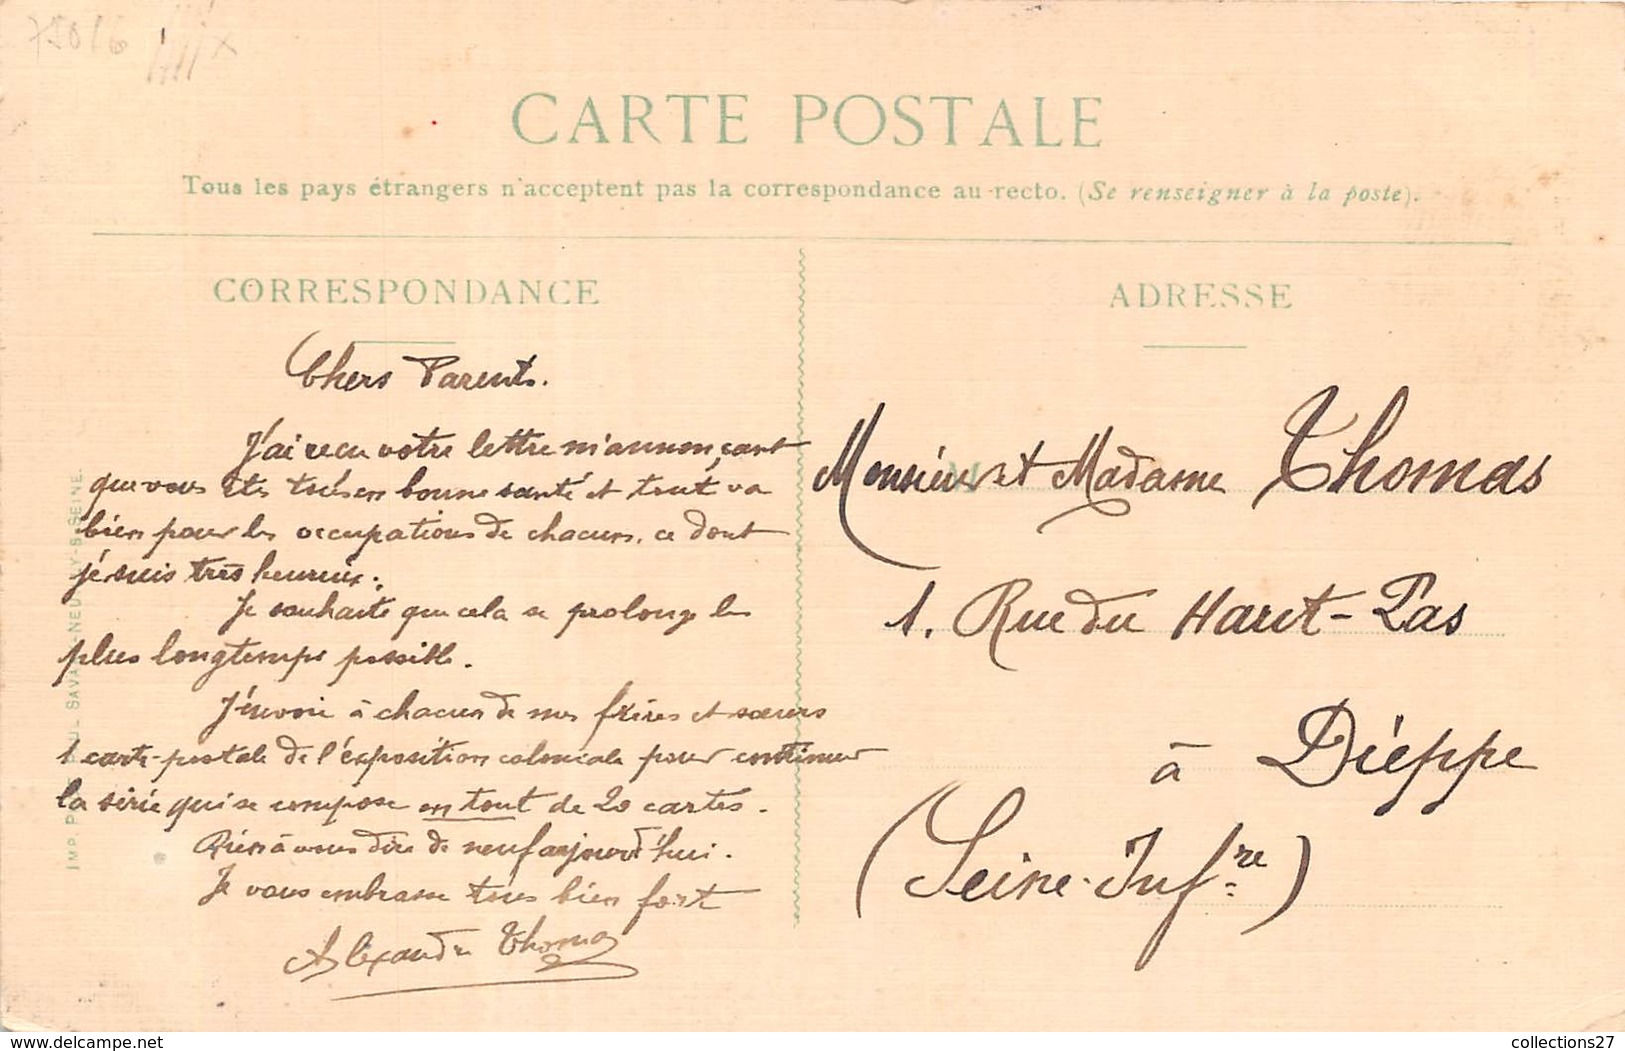 CARTE POSTALE
Tous les pays étrangers n'acceptent pas la correspondance au recto. (Se renseigner à la poste).
CORRESPONDANCE
Chers Parents.
J'ai reçu votre lettre m'annonçant
que vous êtes tous en bonne santé et tout va
bien pour les occupations de chacun, ce dont
je suis très heureux.
Je souhaite que cela se prolonge le
plus longtemps possible.
J'envoie à chacun de mes frères et sœurs
1 carte-postale de l'exposition coloniale pour continuer
la série qui se compose en tout de 20 cartes.
Rien à vous dire de neuf aujourd'hui.
Je vous embrasse tous bien fort
Alexandre Thomas
ADRESSE
Monsieur et Madame Thomas
1. Rue du Haut-Pas
à Dieppe
(Seine-Infre)
IMP. NEU Y-S-SEINE.
delcampe.net
collections27